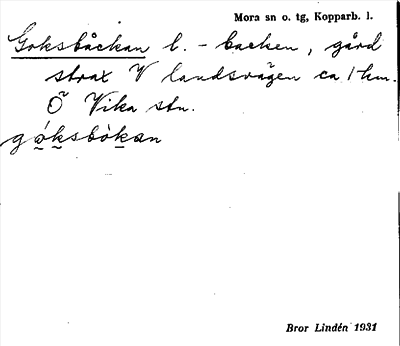 Mora sn o. tg, Kopparb. l.
Goksbåckan l. - backen, gård
strax V landsvägen ca 1 km.
Ö Vika stn.
góksbòkan
Bror Lindén 1931